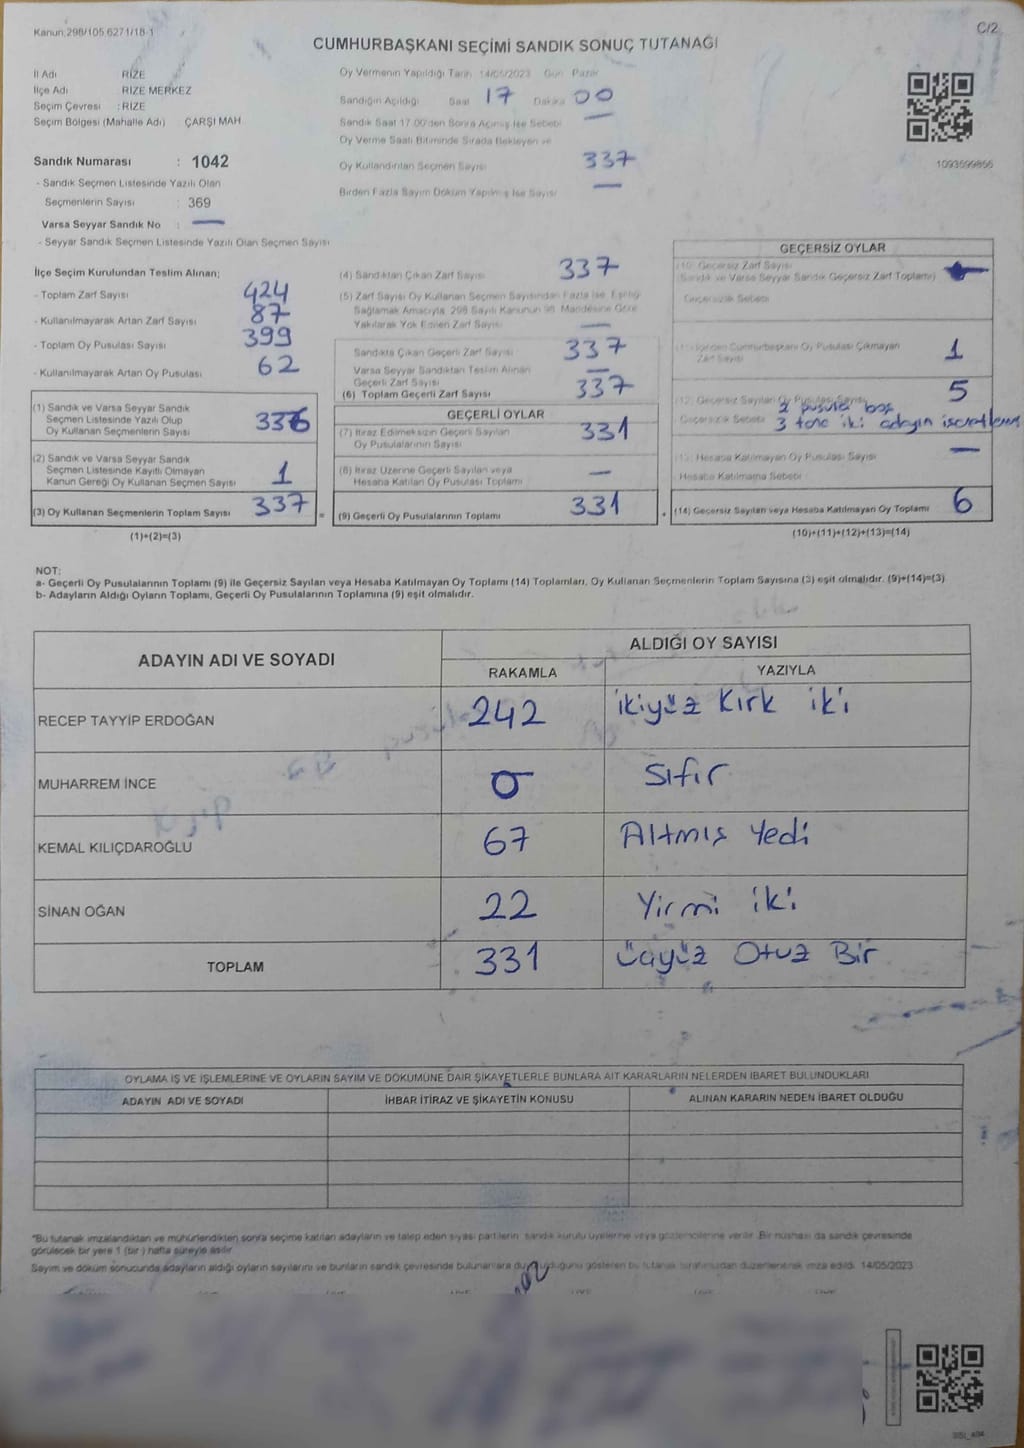 Kanun:298/105,6271/18-1
C/2
CUMHURBAŞKANI SEÇİMİ SANDIK SONUÇ TUTANAĞI
İl Adı RİZE
İlçe Adı RİZE MERKEZ
Seçim Çevresi : RİZE
Seçim Bölgesi (Mahalle Adı) ÇARŞI MAH.
Oy Vermenin Yapıldığı Tarih 14/05/2023 Gün Pazar
Sandığın Açıldığı Saat 17 Dakika 00
Sandık Saat 17.00'den Sonra Açılmış İse Sebebi —
Oy Verme Saati Bitiminde Sırada Bekleyen ve
Oy Kullandırılan Seçmen Sayısı 337
Birden Fazla Sayım Döküm Yapılmış İse Sayısı —
1093599866
Sandık Numarası : 1042
- Sandık Seçmen Listesinde Yazılı Olan
Seçmenlerin Sayısı : 369
Varsa Seyyar Sandık No : —
- Seyyar Sandık Seçmen Listesinde Yazılı Olan Seçmen Sayısı
İlçe Seçim Kurulundan Teslim Alınan;
- Toplam Zarf Sayısı 424
- Kullanılmayarak Artan Zarf Sayısı 87
- Toplam Oy Pusulası Sayısı 399
- Kullanılmayarak Artan Oy Pusulası 62
(1) Sandık ve Varsa Seyyar Sandık
Seçmen Listesinde Yazılı Olup
Oy Kullanan Seçmenlerin Sayısı 336
(2) Sandık ve Varsa Seyyar Sandık
Seçmen Listesinde Kayıtlı Olmayan
Kanun Gereği Oy Kullanan Seçmen Sayısı 1
(3) Oy Kullanan Seçmenlerin Toplam Sayısı 337 =
(1)+(2)=(3)
(4) Sandıktan Çıkan Zarf Sayısı 337
(5) Zarf Sayısı Oy Kullanan Seçmen Sayısından Fazla İse, Eşitliği
Sağlamak Amacıyla, 298 Sayılı Kanunun 98. Maddesine Göre
Yakılarak Yok Edilen Zarf Sayısı —
Sandıkta Çıkan Geçerli Zarf Sayısı 337
Varsa Seyyar Sandıktan Teslim Alınan
Geçerli Zarf Sayısı —
(6) Toplam Geçerli Zarf Sayısı 337
GEÇERLİ OYLAR
(7) İtiraz Edilmeksizin Geçerli Sayılan
Oy Pusulalarının Sayısı 331
(8) İtiraz Üzerine Geçerli Sayılan veya
Hesaba Katılan Oy Pusulası Toplamı —
(9) Geçerli Oy Pusulalarının Toplamı 331 +
GEÇERSİZ OYLAR
(10) Geçersiz Zarf Sayısı
(Sandık ve Varsa Seyyar Sandık Geçersiz Zarf Toplamı)
Geçersizlik Sebebi
(11) İçinden Cumhurbaşkanı Oy Pusulası Çıkmayan
Zarf Sayısı 1
(12) Geçersiz Sayılan Oy Pusulası Sayısı 5
Geçersizlik Sebebi 2 pusula boş
3 tane iki adayın işaretlenmiş
(13) Hesaba Katılmayan Oy Pusulası Sayısı —
Hesaba Katılmama Sebebi
(14) Geçersiz Sayılan veya Hesaba Katılmayan Oy Toplamı 6
(10)+(11)+(12)+(13)=(14)
NOT:
a- Geçerli Oy Pusulalarının Toplamı (9) ile Geçersiz Sayılan veya Hesaba Katılmayan Oy Toplamı (14) Toplamları, Oy Kullanan Seçmenlerin Toplam Sayısına (3) eşit olmalıdır. (9)+(14)=(3)
b- Adayların Aldığı Oyların Toplamı, Geçerli Oy Pusulalarının Toplamına (9) eşit olmalıdır.
ADAYIN ADI VE SOYADI
ALDIĞI OY SAYISI
RAKAMLA YAZIYLA
RECEP TAYYİP ERDOĞAN 242 ikiyüz Kırk iki
MUHARREM İNCE 0 Sıfır
KEMAL KILIÇDAROĞLU 67 Altmış Yedi
SİNAN OĞAN 22 Yirmi iki
TOPLAM 331 Üçyüz Otuz Bir
OYLAMA İŞ VE İŞLEMLERİNE VE OYLARIN SAYIM VE DÖKÜMÜNE DAİR ŞİKAYETLERLE BUNLARA AİT KARARLARIN NELERDEN İBARET BULUNDUKLARI
ADAYIN ADI VE SOYADI İHBAR İTİRAZ VE ŞİKAYETİN KONUSU ALINAN KARARIN NEDEN İBARET OLDUĞU
*Bu tutanak imzalandıktan ve mühürlendikten sonra seçime katılan adayların ve talep eden siyasi partilerin sandık kurulu üyelerine veya gözlemcilerine verilir. Bir nüshası da sandık çevresinde
görülecek bir yere 1 (bir) hafta süreyle asılır.
Sayım ve döküm sonucunda adayların aldığı oyların sayılarını ve bunların sandık çevresinde bulunanlara duyurulduğunu gösteren bu tutanak tarafımızdan düzenlenerek imza edildi. 14/05/2023